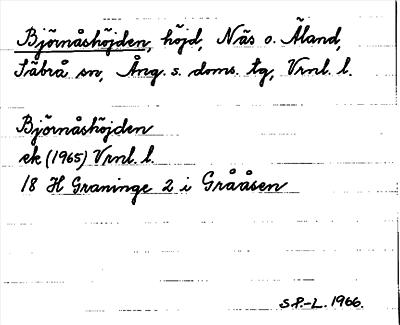 Björnåshöjden, höjd, Näs o. Äland,
Säbrå sn, Ång. s. doms. tg, Vrnl. l.
Björnåshöjden
ek (1965) Vrnl. l.
18 H Graninge 2 i Grååsen
S.P.-L. 1966.